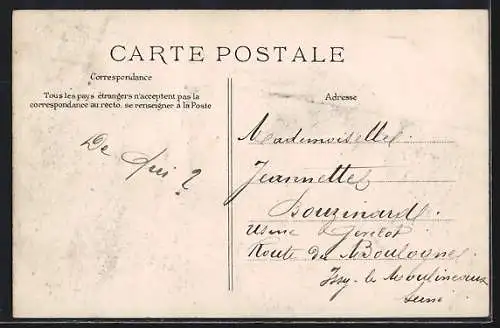 CARTE POSTALE
Correspondance
Tous les pays étrangers n'acceptent pas la
correspondance au recto. se renseigner à la Poste
Adresse
De Qui ?
Mademoiselle
Jeannette
Bouzinard
Usine
Route de Boulogne
Issy-les-Moulineaux
Seine